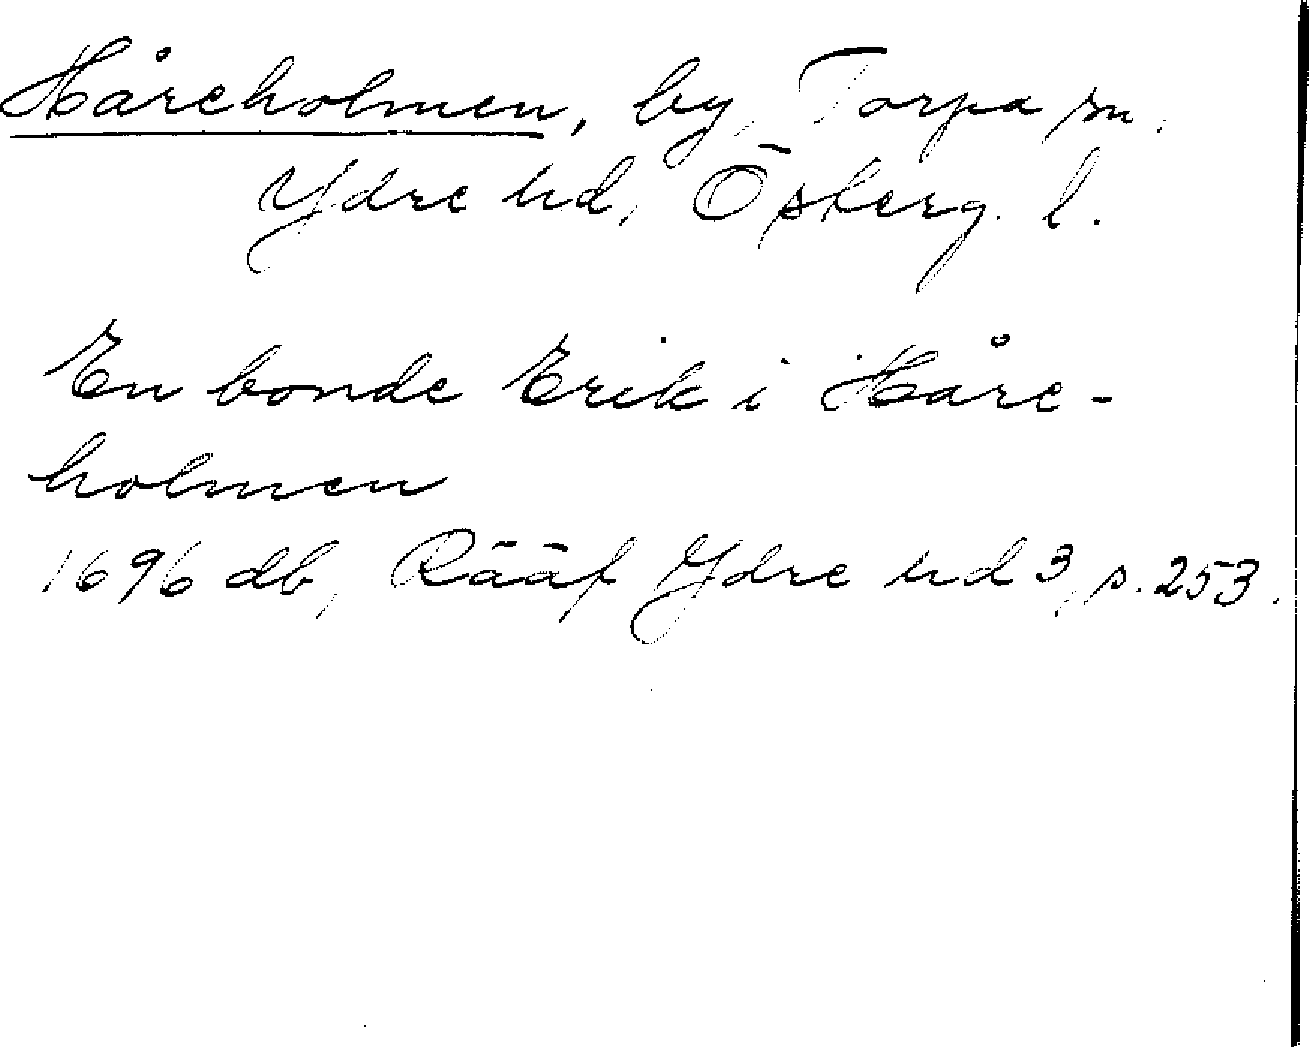 Håreholmen, by, Torpa sn.
Ydre hd, Österg. l.
En bonde Erik i Håre-
holmen
1696 db, Rääf Ydre hd 3, s. 253.